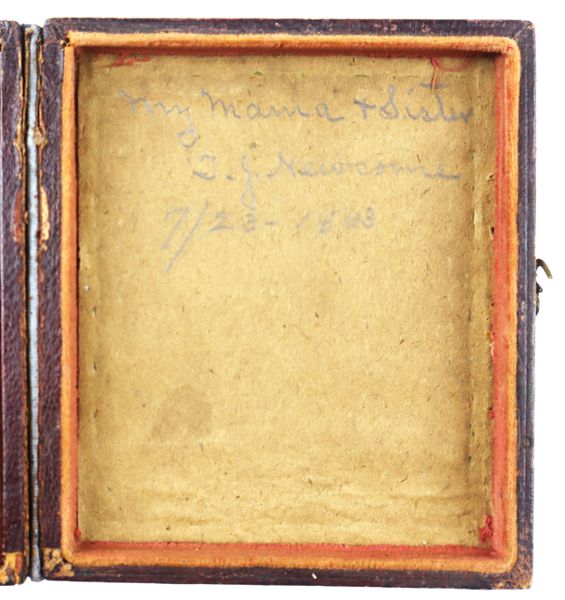 My Mama + Sister
T. J. Newsome
7/23-1863